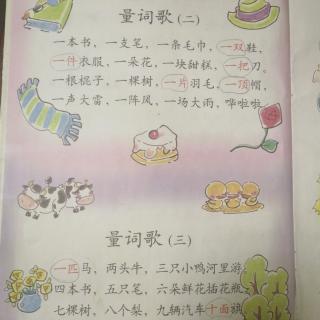 量词歌(二)
一本书，一支笔，一条毛巾，一双鞋，
一件衣服，一朵花，一块甜糕，一把刀，
一根棍子，一棵树，一片羽毛，一顶帽，
一声大雷，一阵风，一场大雨，哗啦啦
量词歌(三)
一匹马，两头牛，三只小鸭河里游，
四本书，五只笔，六朵鲜花插花瓶，
七棵树，八个梨，九辆汽车十面旗